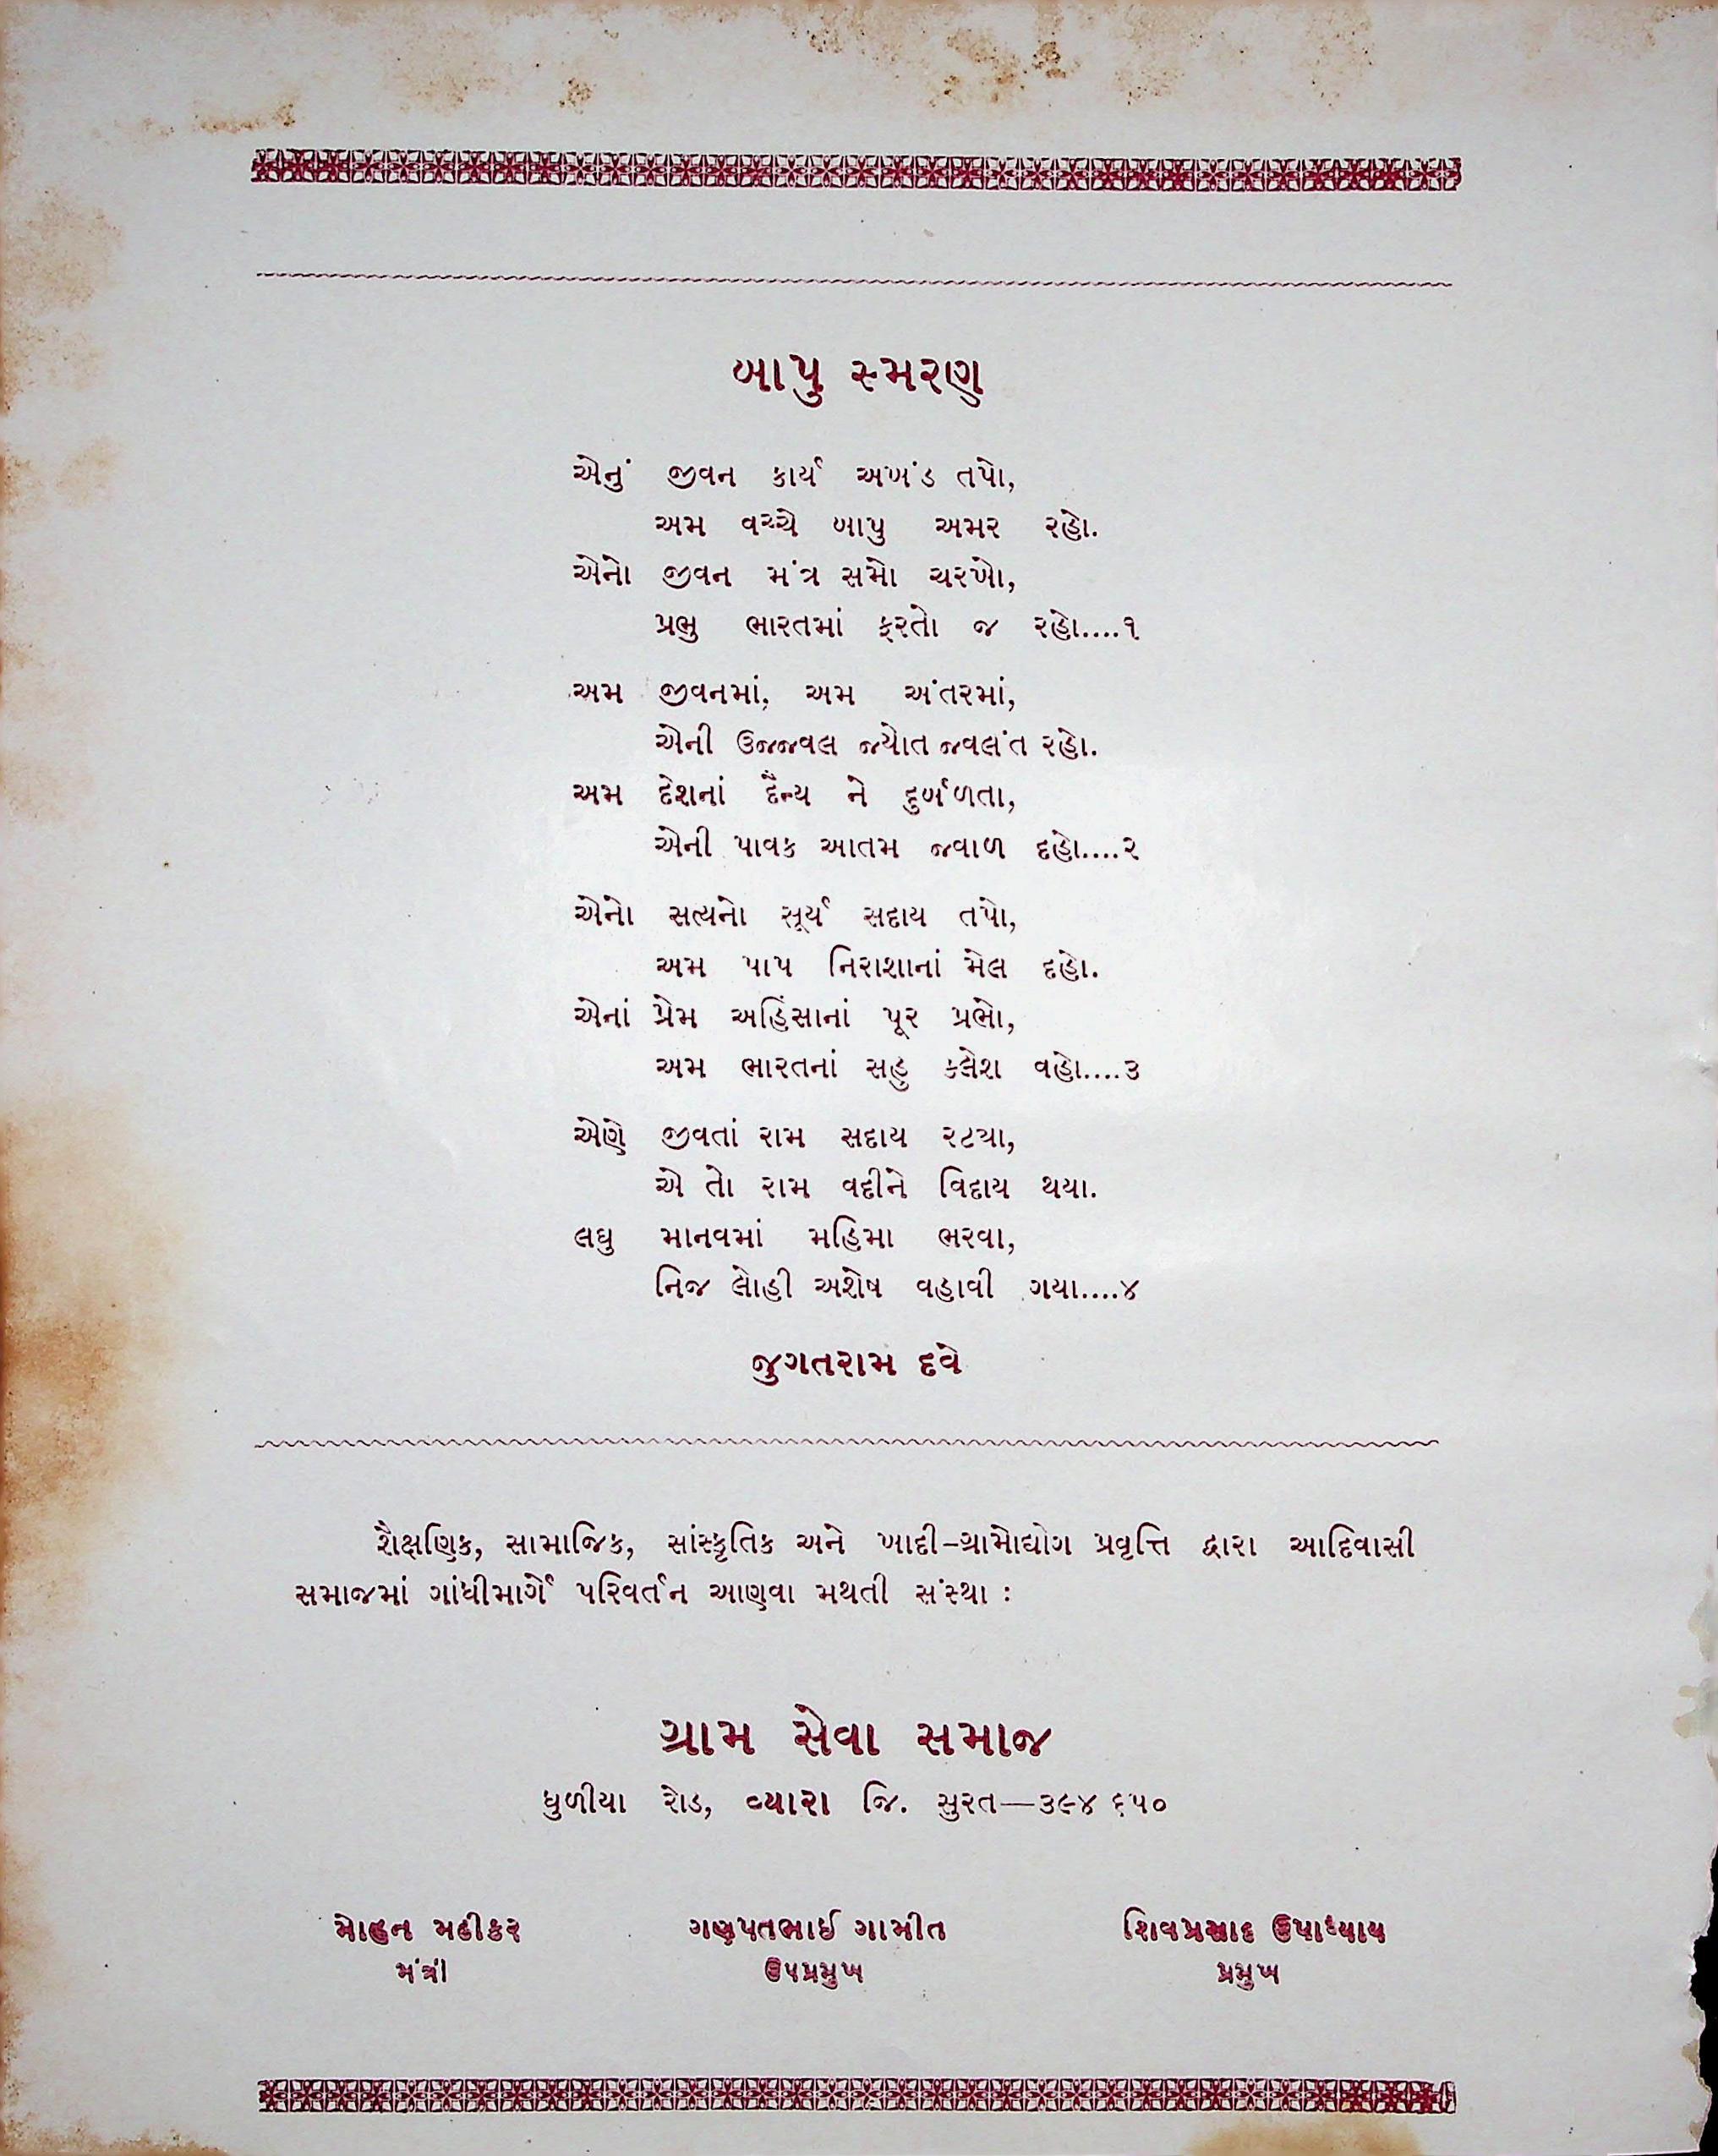 બાપુ સ્મરણ
એનું જીવન કાર્ય અખંડ તપો,
અમ વચ્ચે બાપુ અમર રહો.
એનો જીવન મંત્ર સમો ચરખો,
પ્રભુ ભારતમાં ફરતો જ રહો....૧
અમ જીવનમાં, અમ અંતરમાં,
એની ઉજ્જવલ જ્યોત જ્વલંત રહો.
અમ દેશનાં દૈન્ય ને દુર્બળતા,
એની પાવક આતમ જ્વાળ દહો....૨
એનો સત્યનો સૂર્ય સદાય તપો,
અમ પાપ નિરાશાનાં મેલ દહો.
એનાં પ્રેમ અહિંસાનાં પૂર પ્રભો,
અમ ભારતનાં સહુ ક્લેશ વહો....૩
એણે જીવતાં રામ સદાય રટ્યા,
એ તો રામ વદીને વિદાય થયા.
લઘુ માનવમાં મહિમા ભરવા,
નિજ લોહી અશેષ વહાવી ગયા....૪
જુગતરામ દવે
શૈક્ષણિક, સામાજિક, સાંસ્કૃતિક અને ખાદી-ગ્રામોદ્યોગ પ્રવૃત્તિ દ્વારા આદિવાસી
સમાજમાં ગાંધીમાર્ગે પરિવર્તન આણવા મથતી સંસ્થા :
ગ્રામ સેવા સમાજ
ધુળીયા રોડ, વ્યારા જિ. સુરત—૩૯૪ ૬૫૦
મોહન મઢીકર ગણપતભાઈ ગામીત શિવપ્રસાદ ઉપાધ્યાય
મંત્રી ઉપપ્રમુખ પ્રમુખ